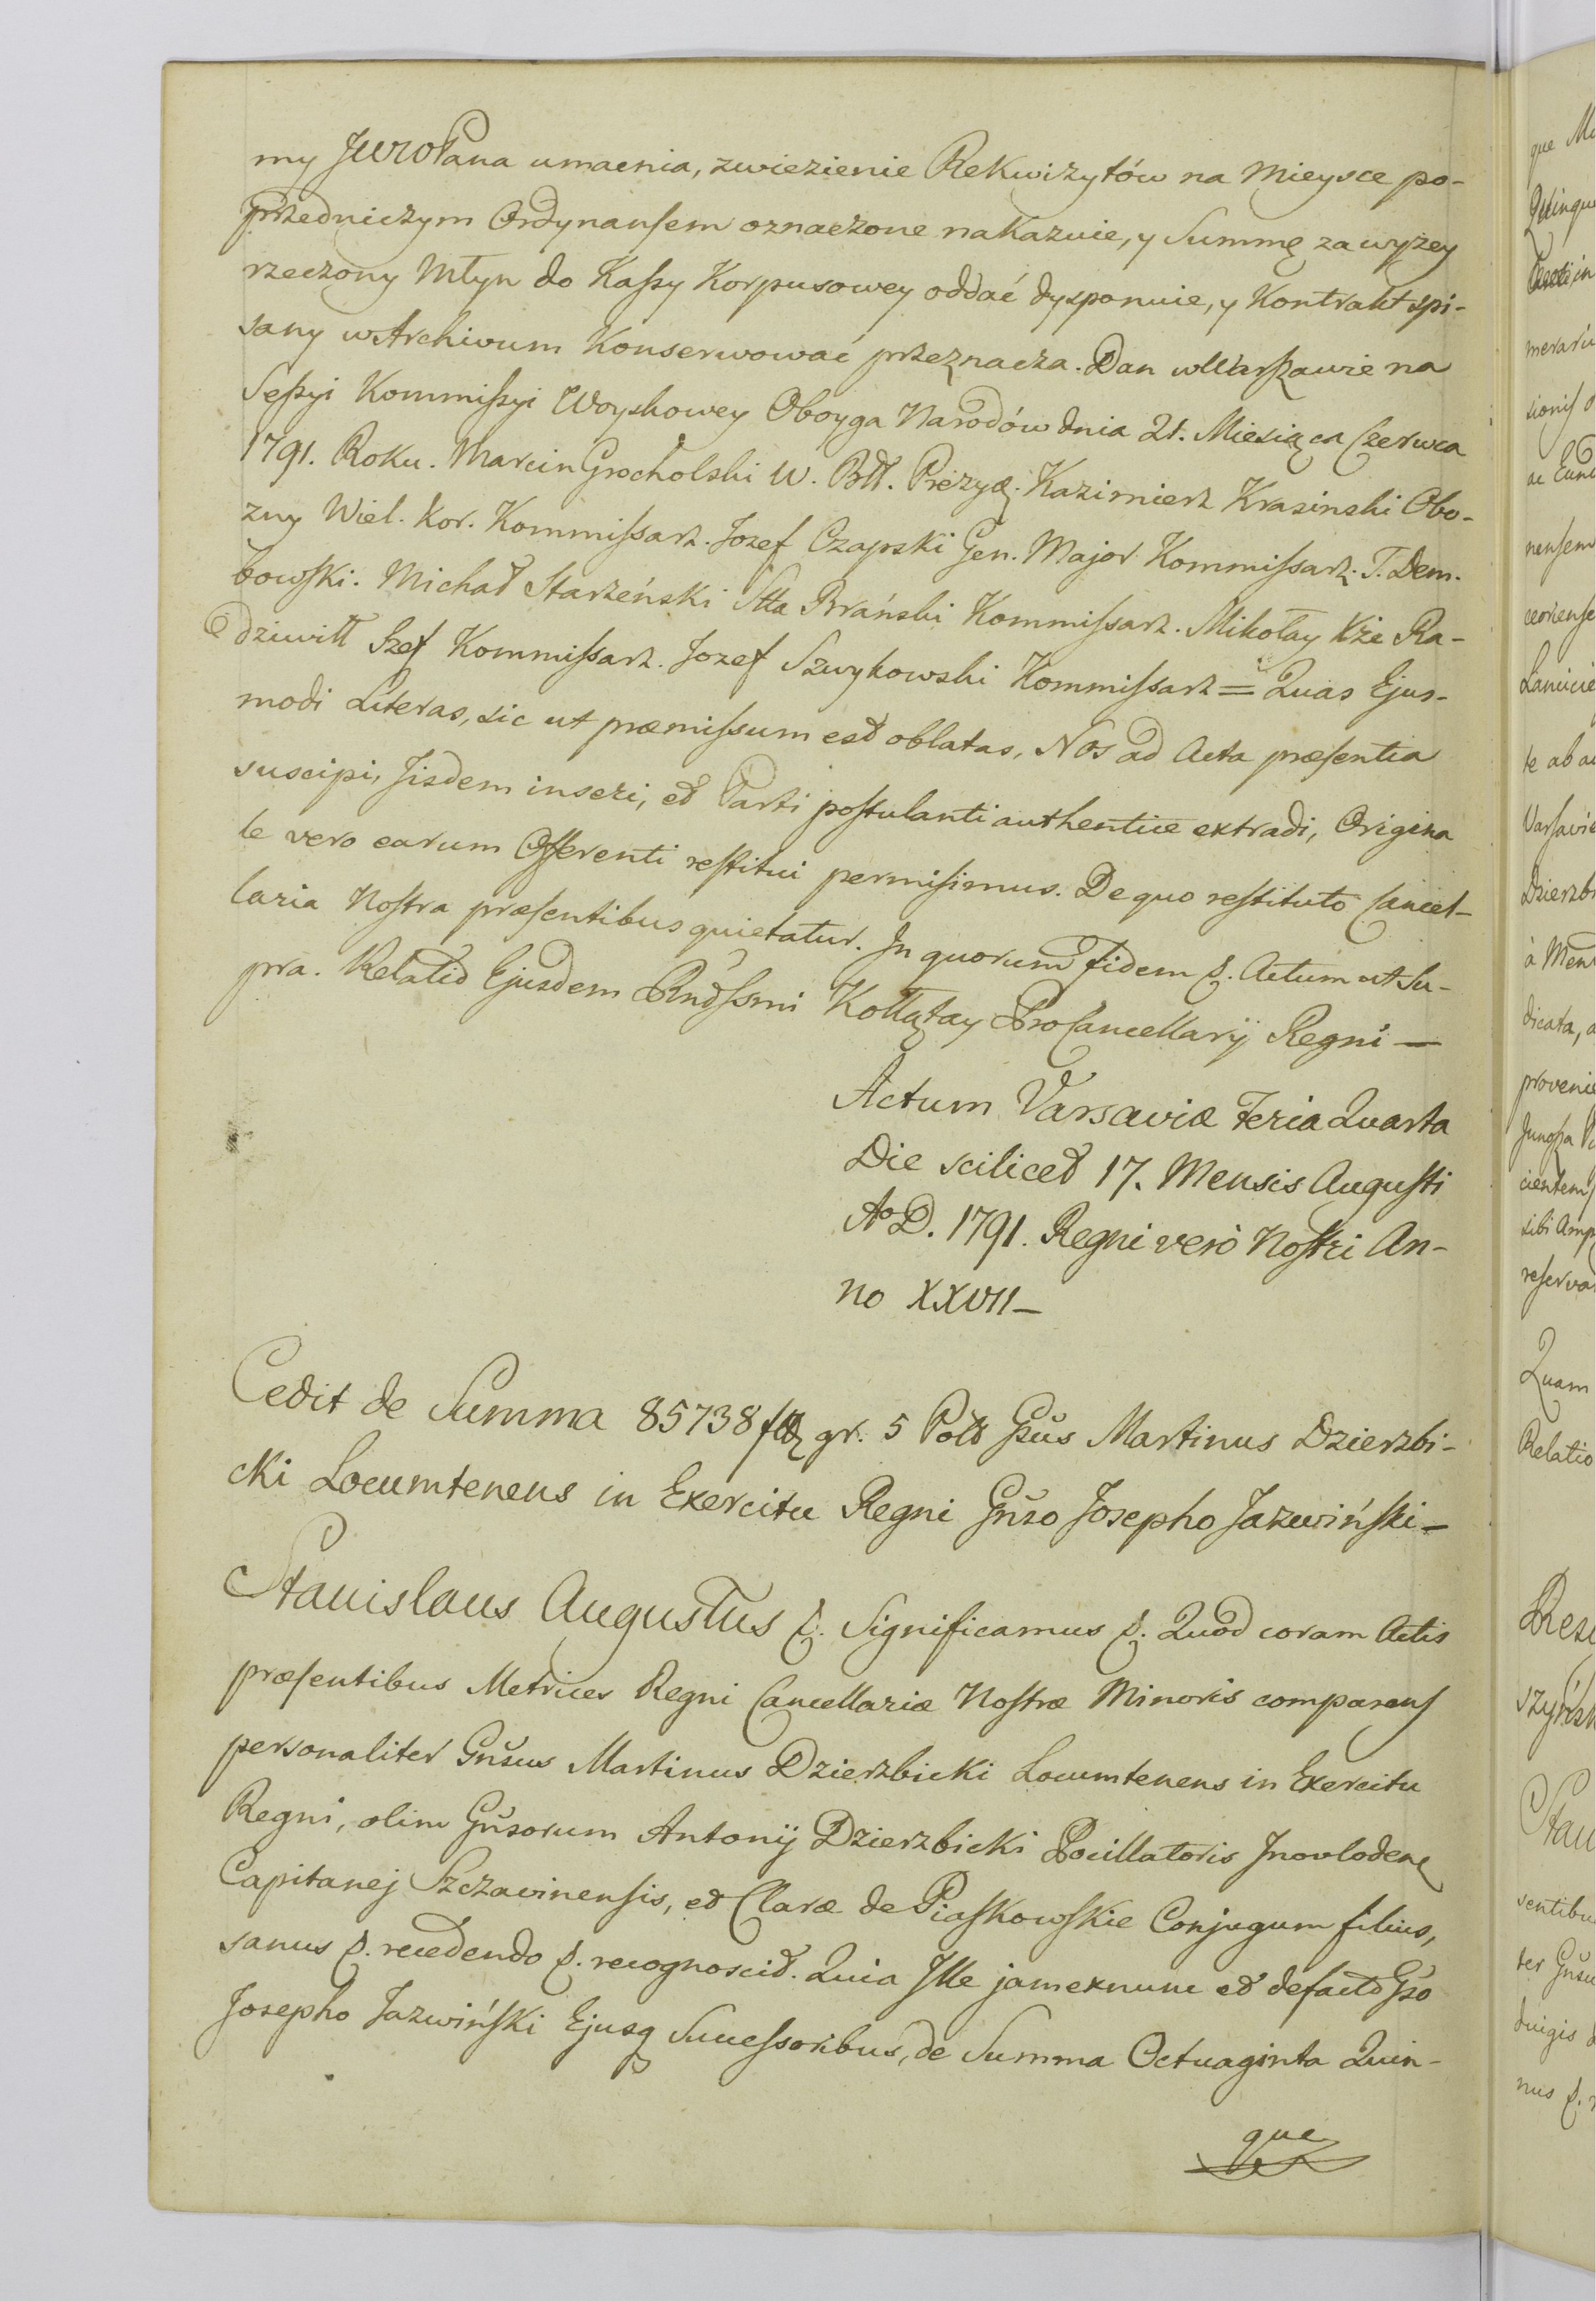 my JWWPana umacnia, zwiezienie Rekwizytów na Mieysce po-
przedniczym Ordynansem oznaczone nakazuie, y Summę za wyzey
rzeczony Młyn do Kassy Korpusowey oddać dysponuie, y Kontrakt spi-
sany w Archivum Konserwować przeznacza. Dan w Warszawie na
Sessyi Kommissyi Woyskowey Oboyga Narodów dnia 21. Miesiąca Czerwca
1791. Roku. Marcin Grocholski W. Błł. Prezyd. Kazimierz Krasinski Obo-
zny Wiel. Kor. Kommissarz. Jozef Czapski Gen. Major Kommissarz. T. Dem-
bowski. Michał Starzeński Stta Brański Kommissarz. Mikołay Xże Ra-
dziwiłł Szef Kommissarz. Jozef Szwykowski Kommissarz = Quas Ejus-
modi Literas, sic ut præmissum est oblatas, Nos ad Acta præsentia
suscipi, Jisdem inseri, et Parti postulanti authentice extradi, Origina
le vero earum Offerenti restitui permisimus. De quo restituto Cancel-
laria Nostra præsentibus quietatur. In quorum fidem &. Actum ut Su-
pra. Relatio Ejusdem Rndssmi Kołłątay ProCancellarij Regni —
Actum Varsaviæ Feria Quarta
Die scilicet 17. Mensis Augusti
Ao D. 1791. Regni verò Nostri An-
no XXVII —
Cedit de Summa 85738 fl gr. 5 Pols Gsus Martinus Dzierzbi-
cki Locumtenens in Exercitu Regni Gnso Josepho Jazwiński —
Stanislaus Augustus &. Significamus &. Quod coram Actis
præsentibus Metrices Regni Cancellariæ Nostræ Minoris comparens
personaliter Gnsus Martinus Dzierzbicki Locumtenens in Exercitu
Regni, olim Gnsorum Antonij Dzierzbicki Pocillatoris Inovlodens
Capitanej Szczawinensis, et Claræ de Piaskowskie Conjugum filius,
sanus &. recedendo &. recognoscit. Quia Ille jam ex nunc et de facto Gso
Josepho Jazwiński Ejusq Successoribus, de Summa Octuaginta Quin-
que